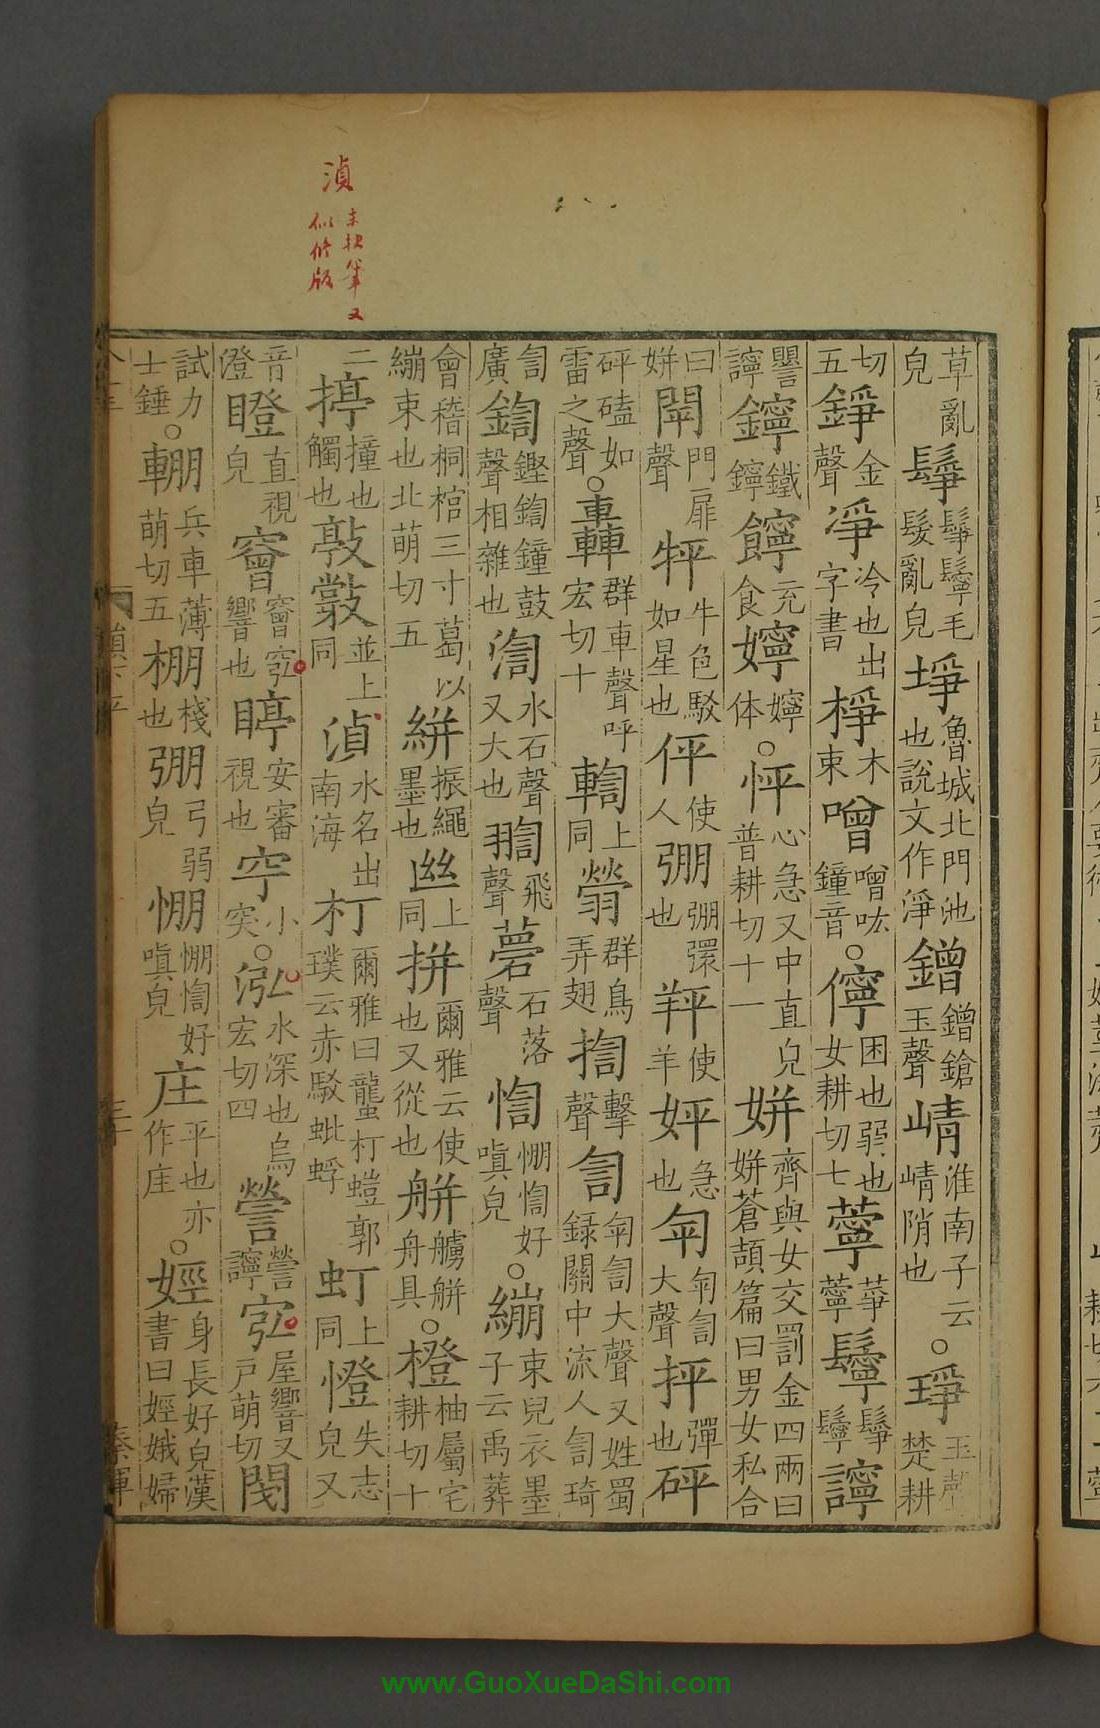 湞 未抉筆又
似修版
草亂皃 鬇 鬇鬡毛髮亂皃 埩 魯城北門池也說文作淨 鏳 鏳鎗玉聲 崝 淮南子云崝陗也 ○ 琤 玉聲楚耕
切五 錚 金聲 凈 冷也出字書 棦 木束 噌 噌吰鐘音 ○ 儜 困也弱也女耕切七 薴 葶薴 鬡 鬇鬡 譨
譻譨 鑏 鐵鑏 𩟐 充食 嬣 嬣体 ○ 怦 心急又中直皃普耕切十一 姘 齊與女交罰金四兩曰姘蒼頡篇曰男女私合
曰姘 閛 門扉聲 牪 牛色駁如星也 伻 使人 弸 弸彋也 羍 使羊 姘 急也 匉 匉訇大聲 抨 彈也 砰
砰磕如雷之聲 ○ 轟 群車聲呼宏切十 輷 上同 翯 群鳥弄翅 揈 擊聲 訇 匉訇大聲又姓蜀錄關中流人訇琦
訇廣 鍧 鏗鍧鐘鼓聲相雜也 渹 水石聲又大也 翃 飛聲 薨 石落聲 恟 㥊恟好嗔皃 ○ 繃 束皃衣墨子云禹葬
會稽桐棺三寸葛以繃束也北萌切五 絣 振繩墨也 㘫 上同 拼 爾雅云使也又從也 艵 艣艵舟具 ○ 橙 柚屬宅耕切十
二 揨 撞也觸也 敦 𢾊 並上同 湞 水名出南海 朾 爾雅曰蠪朾螘郭璞云赤駁蚍蜉 虰 上同 憕 失志皃又
音澄 瞪 直視皃 窬 窬宖響也 聤 安審視也 穵 小突 ○ 泓 水深也烏宏切四 謍 謍譨 宖 屋響又戶萌切 閿
試力士錘 ○ 輣 兵車薄萌切五 棚 棧也 弸 弓弱皃 㥊 㥊恟好嗔皃 庄 平也亦作庄 ○ 娙 身長好皃漢書曰娙娥婦
www.GuoXueDaShi.com